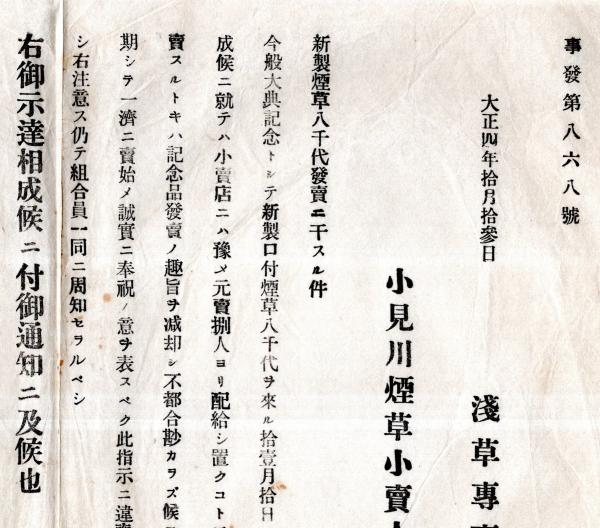 事發第八六八號
大正四年拾月拾參日
淺草專
小見川煙草小賣
新製煙草八千代發賣ニ干スル件
今般大典記念トシテ新製口付煙草八千代ヲ來ル拾壹月拾日
成候ニ就テハ小賣店ニハ豫メ元賣捌人ヨリ配給シ置クコト
賣スルトキハ記念品發賣ノ趣旨ヲ減却シ不都合尠カラズ候
期シテ一濟ニ賣始メ誠實ニ奉祝ノ意ヲ表スベク此指示ニ違
シ右注意ス仍テ組合員一同ニ周知セラルベシ
右御示達相成候ニ付御通知ニ及候也